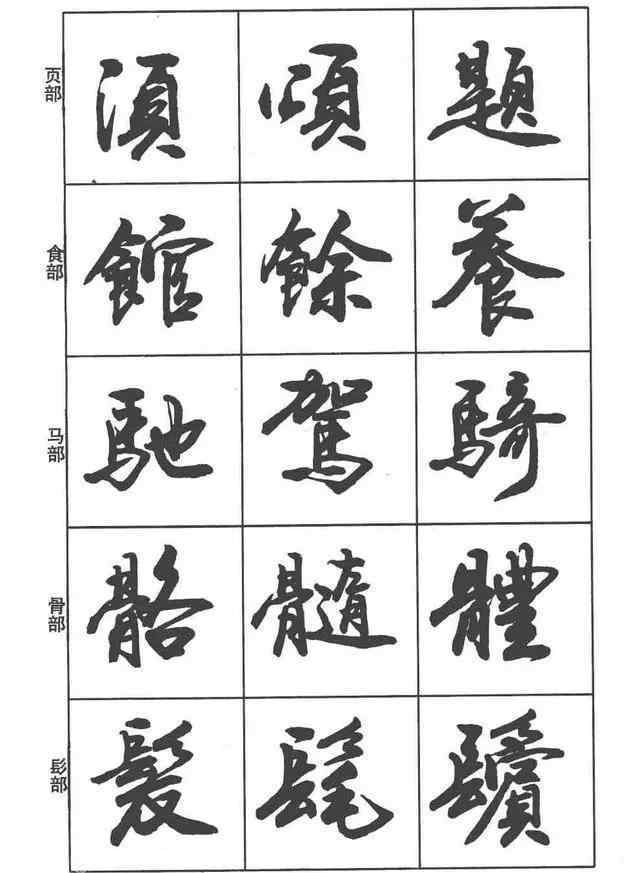 页部 須 頌 題
食部 館 餘 養
马部 馳 駕 騎
骨部 骼 髓 體
髟部 髮 髦 鬢